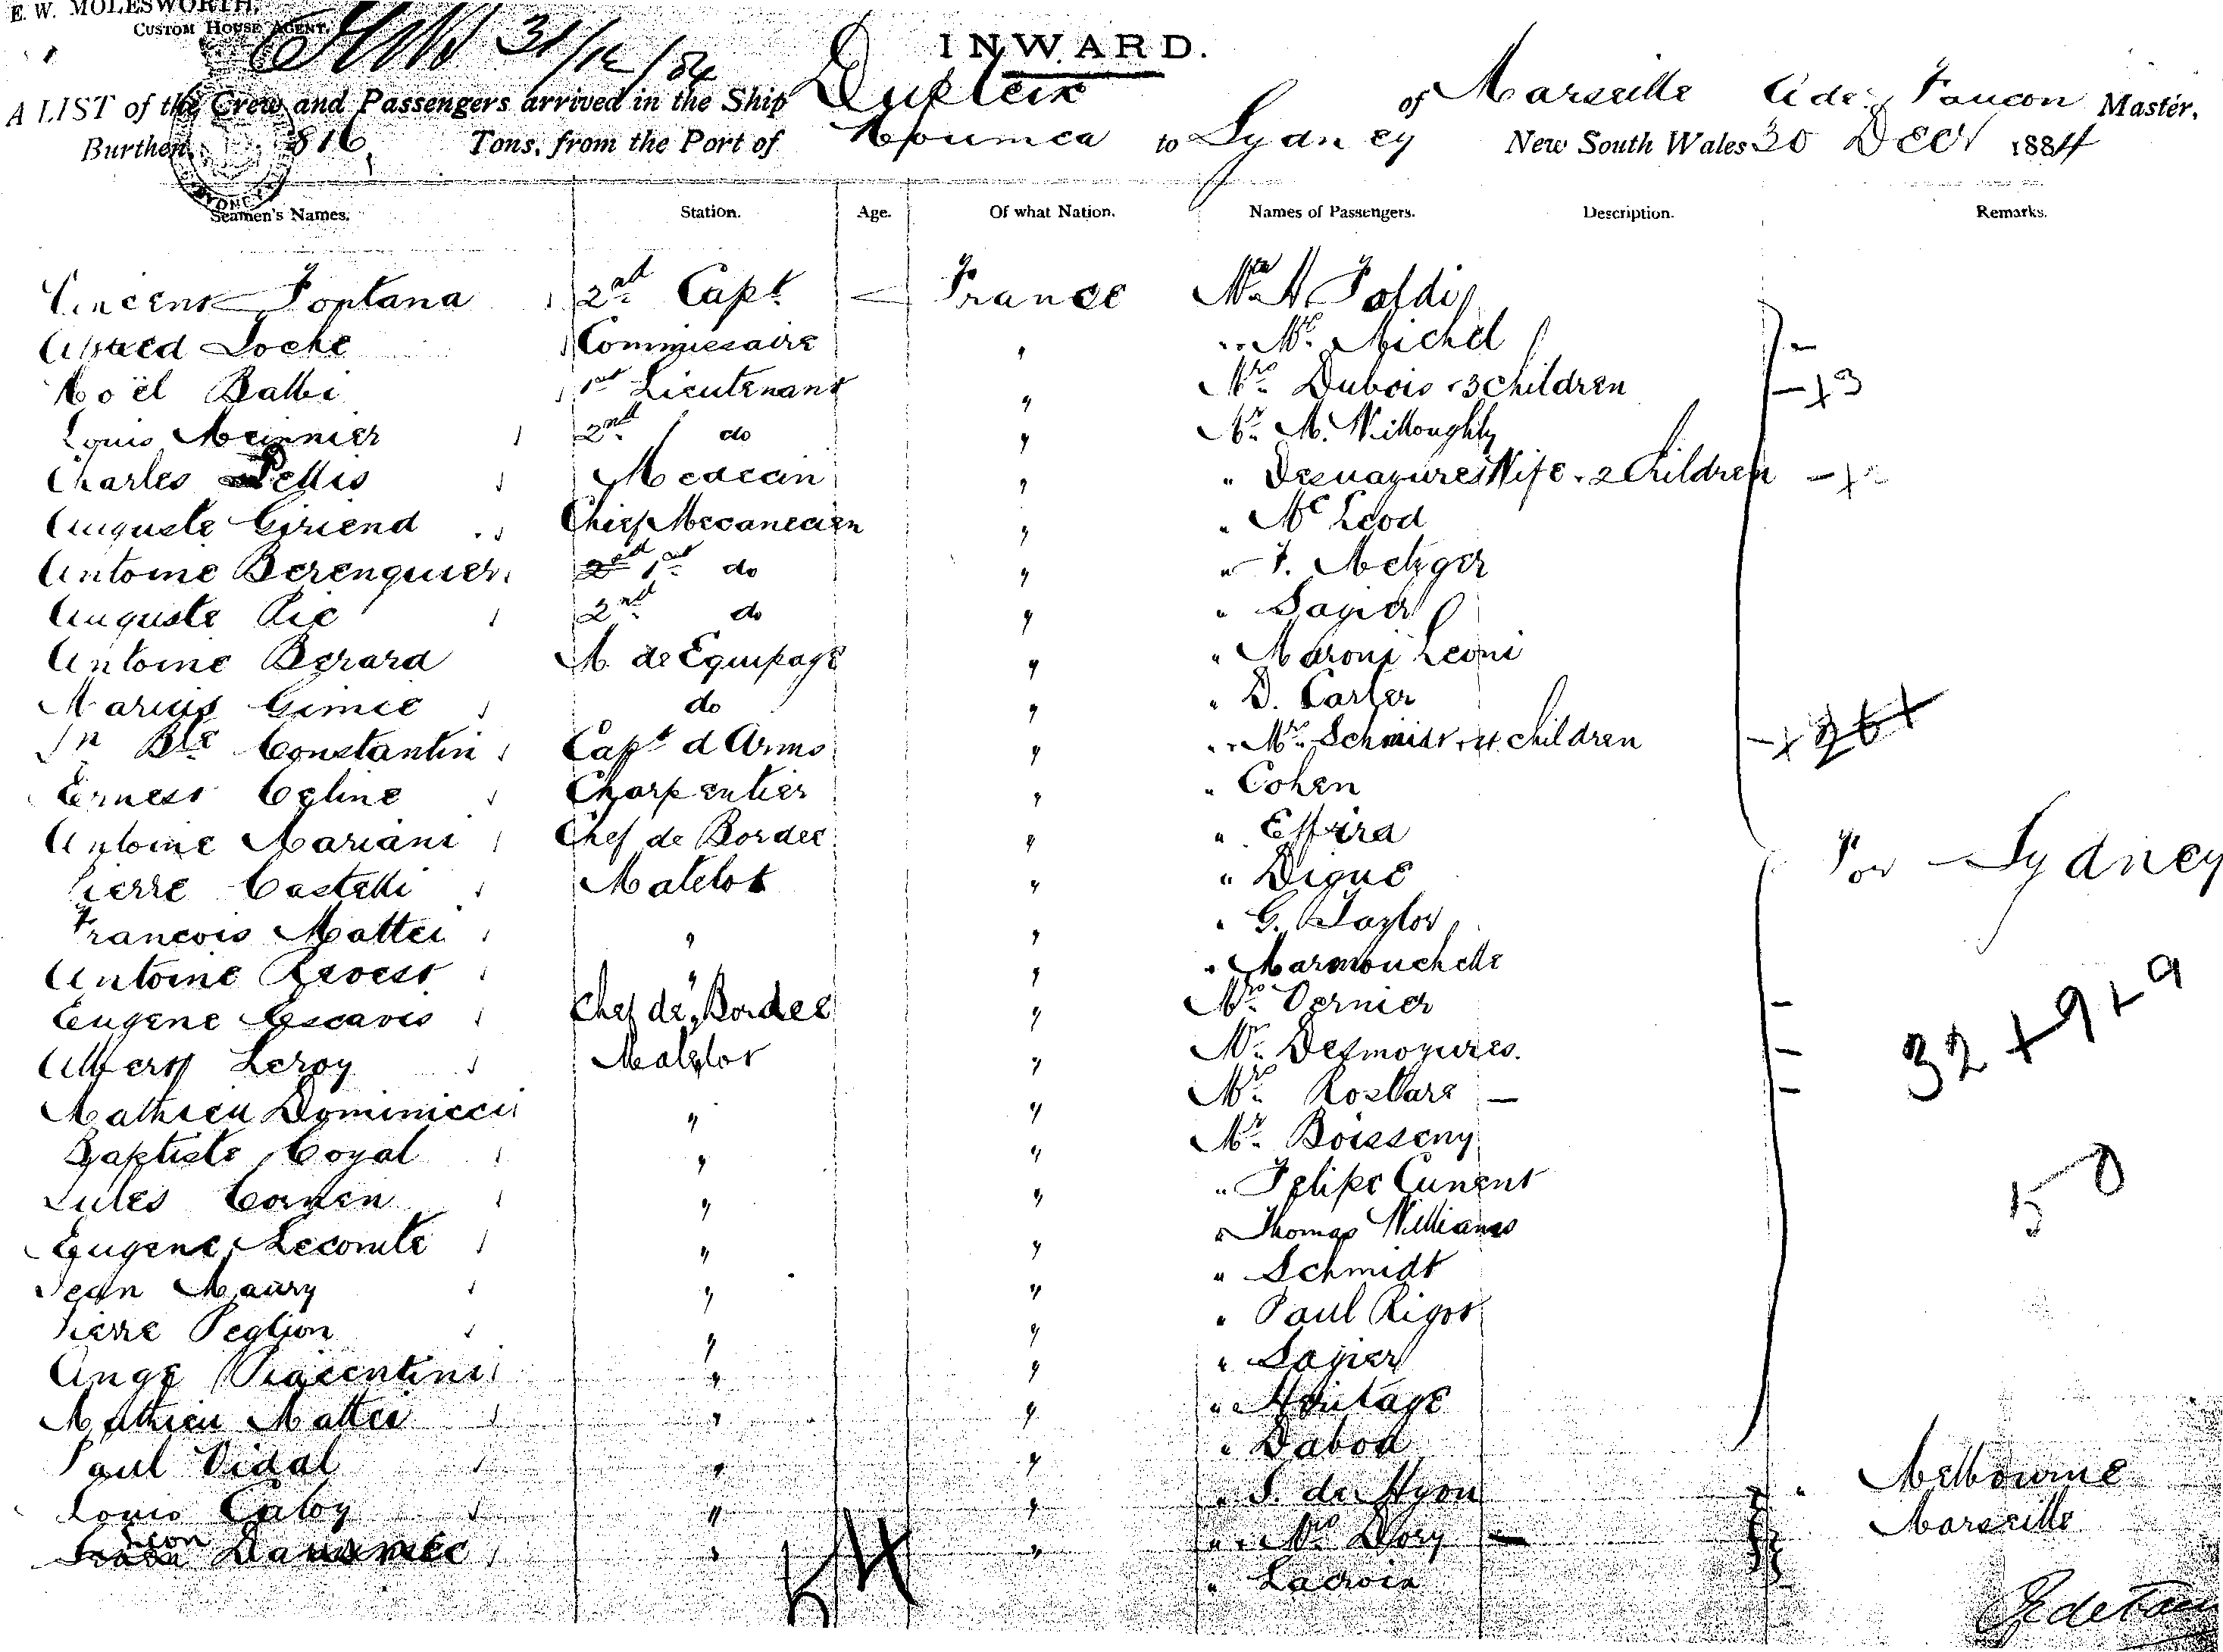 E. W. MOLESWORTH,
CUSTOM HOUSE AGENT.
31/12/84
INWARD.
A LIST of the Crew and Passengers arrived in the Ship Dupleix of Marseille A de Faucon Master,
Burthen, 816 Tons, from the Port of Noumea to Sydney New South Wales 30 Decr 1884
SYDNEY
Seamen's Names. Station. Age. Of what Nation. Names of Passengers. Description. Remarks.
Vincent Fontana 2nd Capt — France Mr & Mrs Foldi
Alfred Loche Commissaire " " Mrs Michel —
Noël Balbi 1st Lieutenant " Mrs Dubois + 3 children — + 3
Louis Meunier 2nd do " Mr M. Willoughby
Charles Pellis Medecin " " Wife + 2 Children — +
Auguste Giriend Chief Mecanecien " " McLeod
Antoine Berenguier 1st do " " F. Metzger
Auguste Pic 2nd do " " Sagier
Antoine Berard M. de Equipage " " Maroni Leoni
Marius Gimie do " " D. Carter
Jn Bte Constantin Capt d Arms " " Mrs Schmidt + 4 children — +
Ernest Celine Charpentier " " Cohen
Antoine Mariani Chef de Bordee " " Effira
Pierre Castelli Matelot " " Digue For Sydney
Francois Mattei " " " G. Taylor
Antoine Revest " " " Marmouchelle
Eugene Escavis Chef de Bordee " Mrs Vernier — 32 + 9 + 9
Albert Leroy Matelot " Mrs Desmozures. —
Mathieu Dominicci " " Mrs Rostare — —
Baptiste Coyal " " Mr Boisseny 50
Jules Cornen " " " Felipe Cunent
Eugene Lecomte " " " Thomas Williams
Jean Maury " " " Schmidt
Pierre Peglion " " " Paul Rigot
Ange Piacentini " " " Sagier
Mathieu Mattei " " " Heritage
Paul Vidal " " " Dabod
Louis Caloy " " " S. de Hyon " Melbourne
Leon " " " Mrs Dory — Marseille
54 " Lacroix